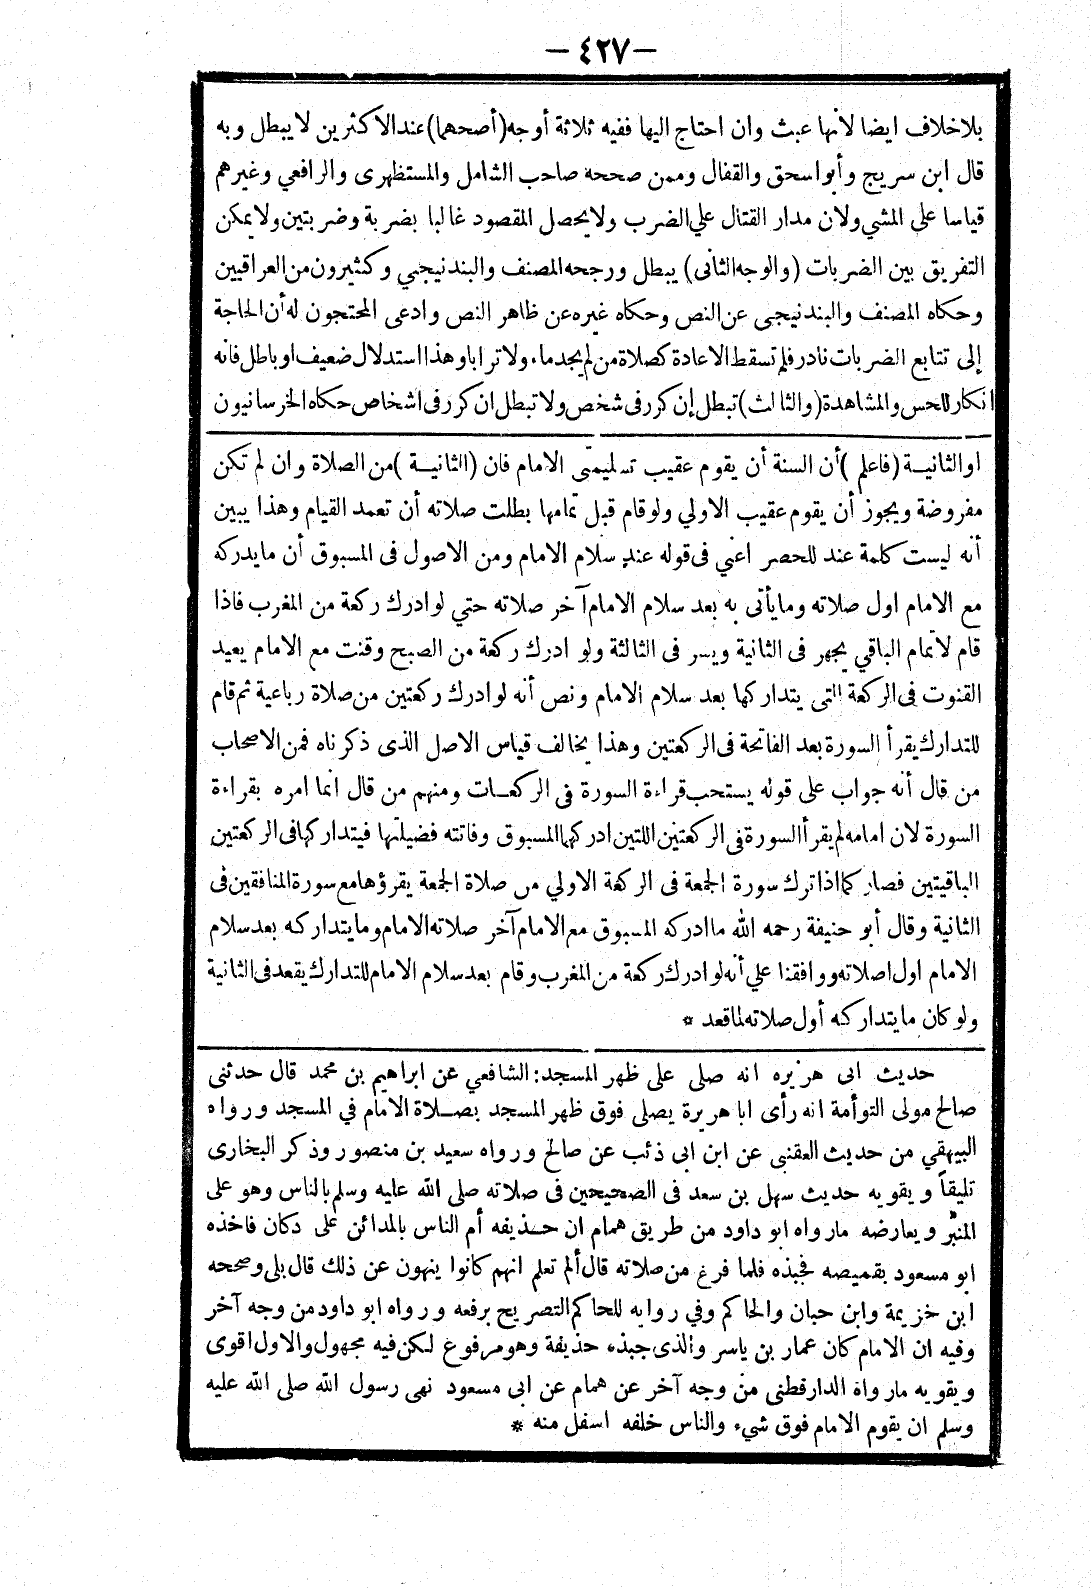 — ٤٢٧ —
بلاخلاف ايضا لأنها عبث وان احتاج اليها ففيه ثلاثة أوجه (أصحهما) عند الاكثرين لا يبطل وبه
قال ابن سريج وأبو اسحق والقفال وممن صححه صاحب الشامل والمستظهرى والرافعي وغيرهم
قياسا علي المشي ولان مدار القتال علي الضرب ولا يحصل المقصود غالبا بضربة وضربتين ولا يمكن
التفريق بين الضربات (والوجه الثانى) يبطل ورجحه المصنف والبندنيجي وكثيرون من العراقيين
وحكاه المصنف والبندنيجى عن النص وحكاه غيره عن ظاهر النص وادعى المحتجون له أن الحاجة
إلى تتابع الضربات نادر فلم تسقط الاعادة كصلاة من لم يجد ماء ولا ترابا وهذا استدلال ضعيف او باطل فانه
انكار للحس والمشاهدة (والثالث) تبطل إن كرر فى شخص ولا تبطل ان كرر فى اشخاص حكاه الخرسانيون
او الثانيـة (فاعلم) أن السنة أن يقوم عقيب تسليمتى الامام فان (الثانيـة) من الصلاة وان لم تكن
مفروضة ويجوز أن يقوم عقيب الاولي ولو قام قبل تمامها بطلت صلاته أن تعمد القيام وهذا يبين
أنه ليست كلمة عند للحصر اعني فى قوله عند سلام الامام ومن الاصول فى المسبوق أن ما يدركه
مع الامام اول صلاته وما يأتى به بعد سلام الامام آخر صلاته حتي لو ادرك ركعة من المغرب فاذا
قام لاتمام الباقي يجهر فى الثانية ويسر فى الثالثة ولو ادرك ركعة من الصبح وقنت مع الامام يعيد
القنوت فى الركعة التى يتداركها بعد سلام الامام ونص أنه لو ادرك ركعتين من صلاة رباعية ثم قام
للتدارك يقرأ السورة بعد الفاتحة فى الركعتين وهذا يخالف قياس الاصل الذى ذكرناه فمن الاصحاب
من قال أنه جواب على قوله يستحب قراءة السورة فى الركعـات ومنهم من قال انما امره بقراءة
السورة لان امامه لم يقرأ السورة فى الركعتين اللتين ادركها المسبوق وفاتته فضيلتها فيتداركها فى الركعتين
الباقيتين فصار كما اذا ترك سورة الجمعة فى الركعة الاولي من صلاة الجمعة يقرؤها مع سورة المنافقين فى
الثانية وقال أبو حنيفة رحمه الله ما ادركه المسبوق مع الامام آخر صلاته الامام وما يتداركه بعد سلام
الامام اول اصلاته ووافقنا علي أنه لو ادرك ركعة من المغرب وقام بعد سلام الامام للتدارك يقعد فى الثانية
ولو كان ما يتداركه أول صلاته لما قعد *
حديث ابى هريره انه صلى على ظهر المسجد: الشافعي عن ابراهيم بن محمد قال حدثنى
صالح مولى التوأمة انه رأى ابا هريرة يصلى فوق ظهر المسجد بصـلاة الامام في المسجد ورواه
البيهقي من حديث القعنبى عن ابن ابى ذئب عن صالح ورواه سعيد بن منصور وذكر البخارى
تليقاً ويقويه حديث سهل بن سعد فى الصحيحين فى صلاته صلى الله عليه وسلم بالناس وهو على
المنبر ويعارضه مارواه ابو داود من طريق همام ان حـذيفه أم الناس بالمدائن على دكان فاخذه
ابو مسعود بقميصه فجبذه فلما فرغ من صلاته قال ألم تعلم انهم كانوا ينهون عن ذلك قال بلى وصححه
ابن خزيمة وابن حبان والحاكم وفي روايه للحاكم التصريح برفعه ورواه ابو داود من وجه آخر
وفيه ان الامام كان عمار بن ياسر والذى جبذه حذيفة وهو مرفوع لكن فيه مجهول والاول اقوى
ويقويه مارواه الدارقطنى من وجه آخر عن همام عن ابى مسعود نهى رسول الله صلى الله عليه
وسلم ان يقوم الامام فوق شيء والناس خلفه اسفل منه *